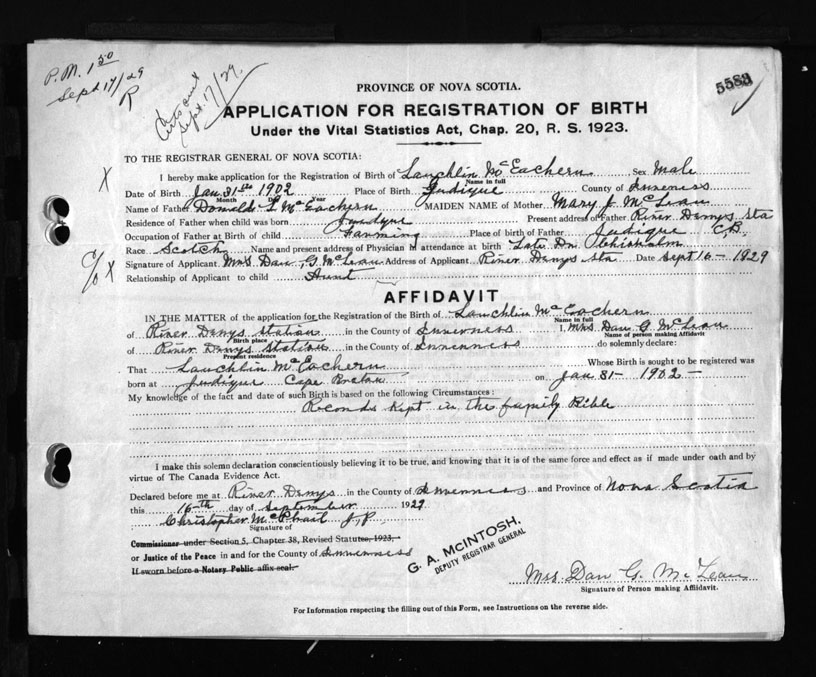 P.M. 1 50
Sept 17/29
R
Sept. 17/29.
5583
PROVINCE OF NOVA SCOTIA.
APPLICATION FOR REGISTRATION OF BIRTH
Under the Vital Statistics Act, Chap. 20, R. S. 1923.
TO THE REGISTRAR GENERAL OF NOVA SCOTIA:
X
I hereby make application for the Registration of Birth of Lauchlin McEachern Sex Male
Name in full
Date of Birth Jan. 31st 1902 Place of Birth Judique County of Inverness
Month Day Year
Name of Father Donald L McEachern MAIDEN NAME of Mother Mary J. McLean
Residence of Father when child was born Judique Present address of Father River Denys Sta
Occupation of Father at Birth of child Farming Place of birth of Father Judique C.B.
Race Scotch Name and present address of Physician in attendance at birth Late Dr. Chisholm
c/o X
Signature of Applicant Mrs. Dan. G. McLean Address of Applicant River Denys Sta. Date Sept 16 - 1929
Relationship of Applicant to child Aunt
AFFIDAVIT
IN THE MATTER of the application for the Registration of the Birth of Lauchlin McEachern
Name in full
of River Denys Station in the County of Inverness I, Mrs Dan G. McLean
Birth place Name of person making Affidavit
of River Denys Station in the County of Inverness do solemnly declare:
Present residence
That Lauchlin McEachern Whose Birth is sought to be registered was
born at Judique Cape Breton on Jan 31 - 1902 -
My knowledge of the fact and date of such Birth is based on the following Circumstances:
Records kept in the family Bible
I make this solemn declaration conscientiously believing it to be true, and knowing that it is of the same force and effect as if made under oath and by
virtue of The Canada Evidence Act.
Declared before me at River Denys in the County of Inverness and Province of Nova Scotia
this 16th day of September 1929
Christopher McPhail J.P.
Signature of
Commissioner under Section 5, Chapter 38, Revised Statutes, 1923,
or Justice of the Peace in and for the County of Inverness
If sworn before a Notary Public affix seal.
G. A. McINTOSH,
DEPUTY REGISTRAR GENERAL
Mrs. Dan G. McLean
Signature of Person making Affidavit.
For Information respecting the filling out of this Form, see Instructions on the reverse side.